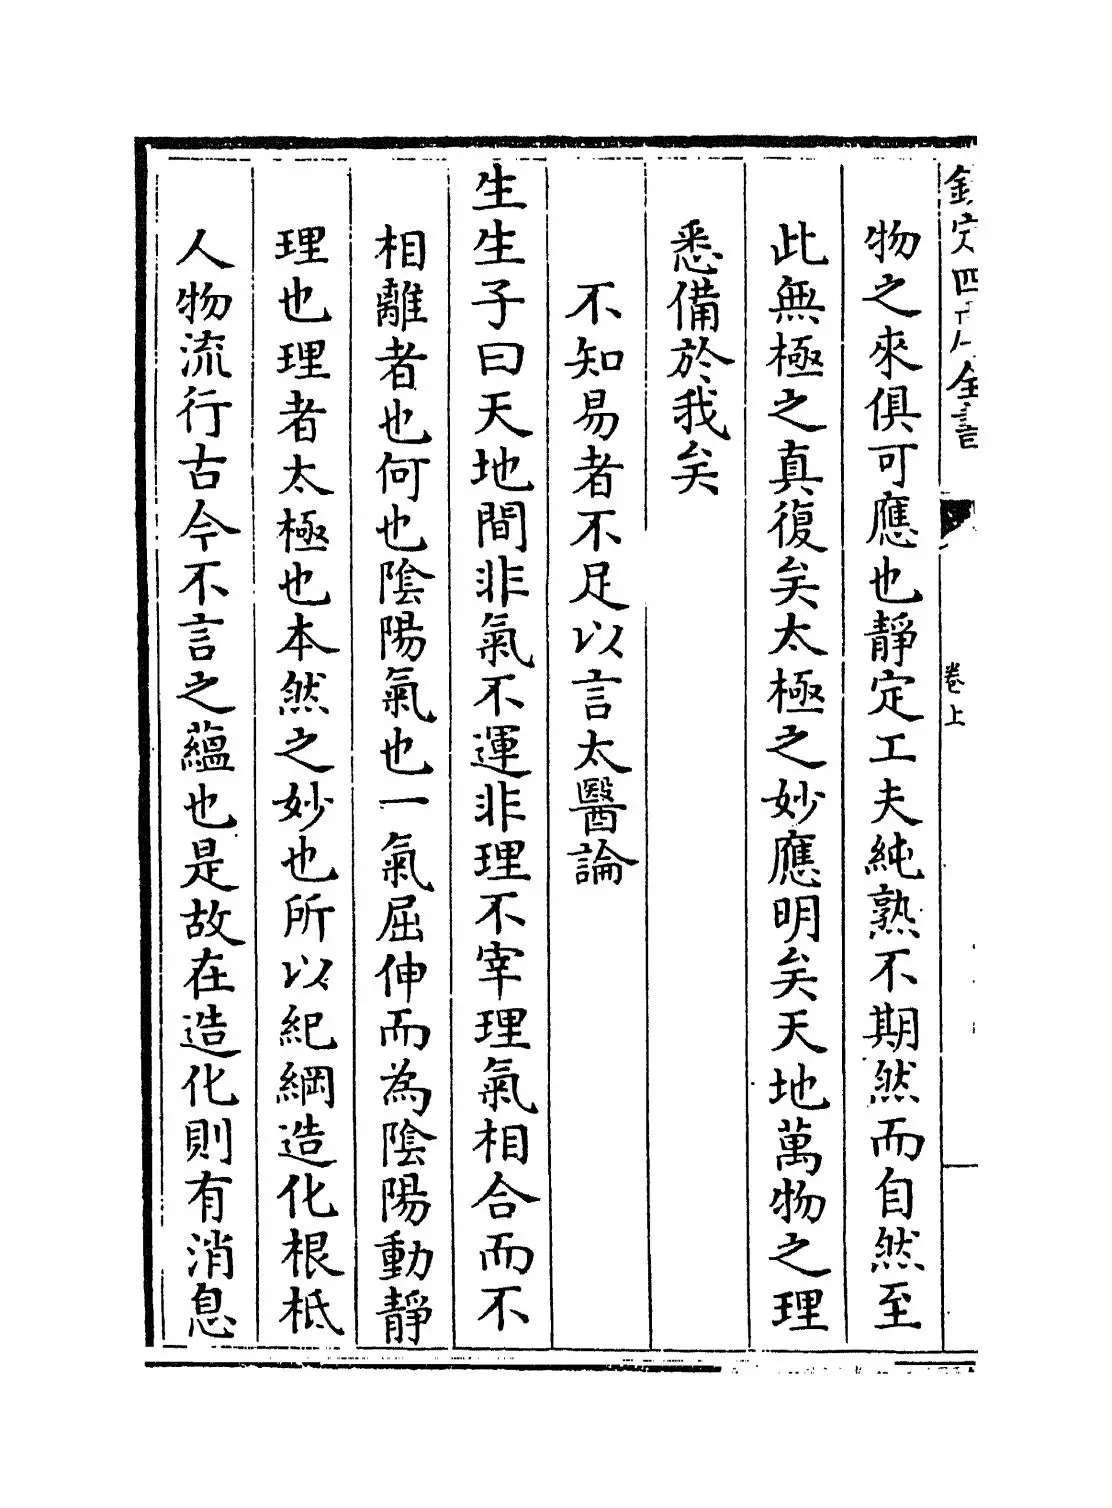 欽定四庫全書
卷上
物之來俱可應也靜定工夫純熟不期然而自然至
此無極之真復矣太極之妙應明矣天地萬物之理
悉備於我矣
不知易者不足以言太醫論
生生子曰天地間非氣不運非理不宰理氣相合而不
相離者也何也陰陽氣也一氣屈伸而為陰陽動靜
理也理者太極也本然之妙也所以紀綱造化根柢
人物流行古今不言之蘊也是故在造化則有消息